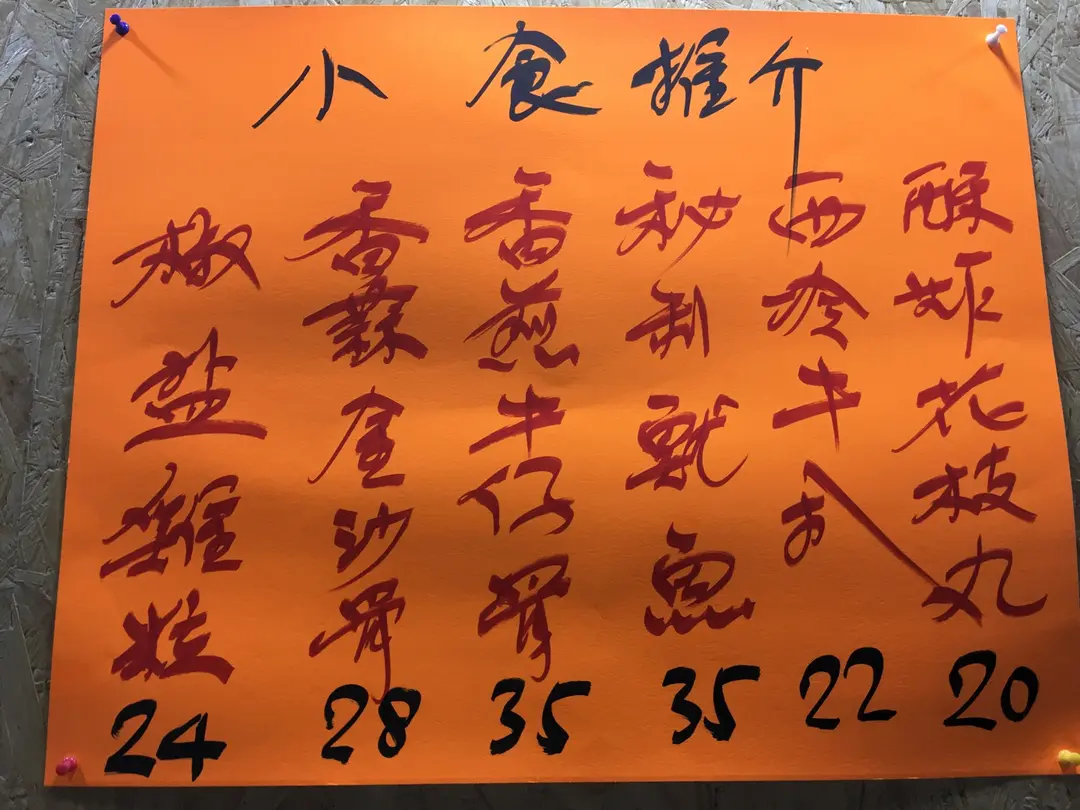 小食推介
酥炸花枝丸 20
西冷牛扒 22
秘制魷魚 35
香煎牛仔骨 35
香蒜金沙骨 28
椒盐雞粒 24